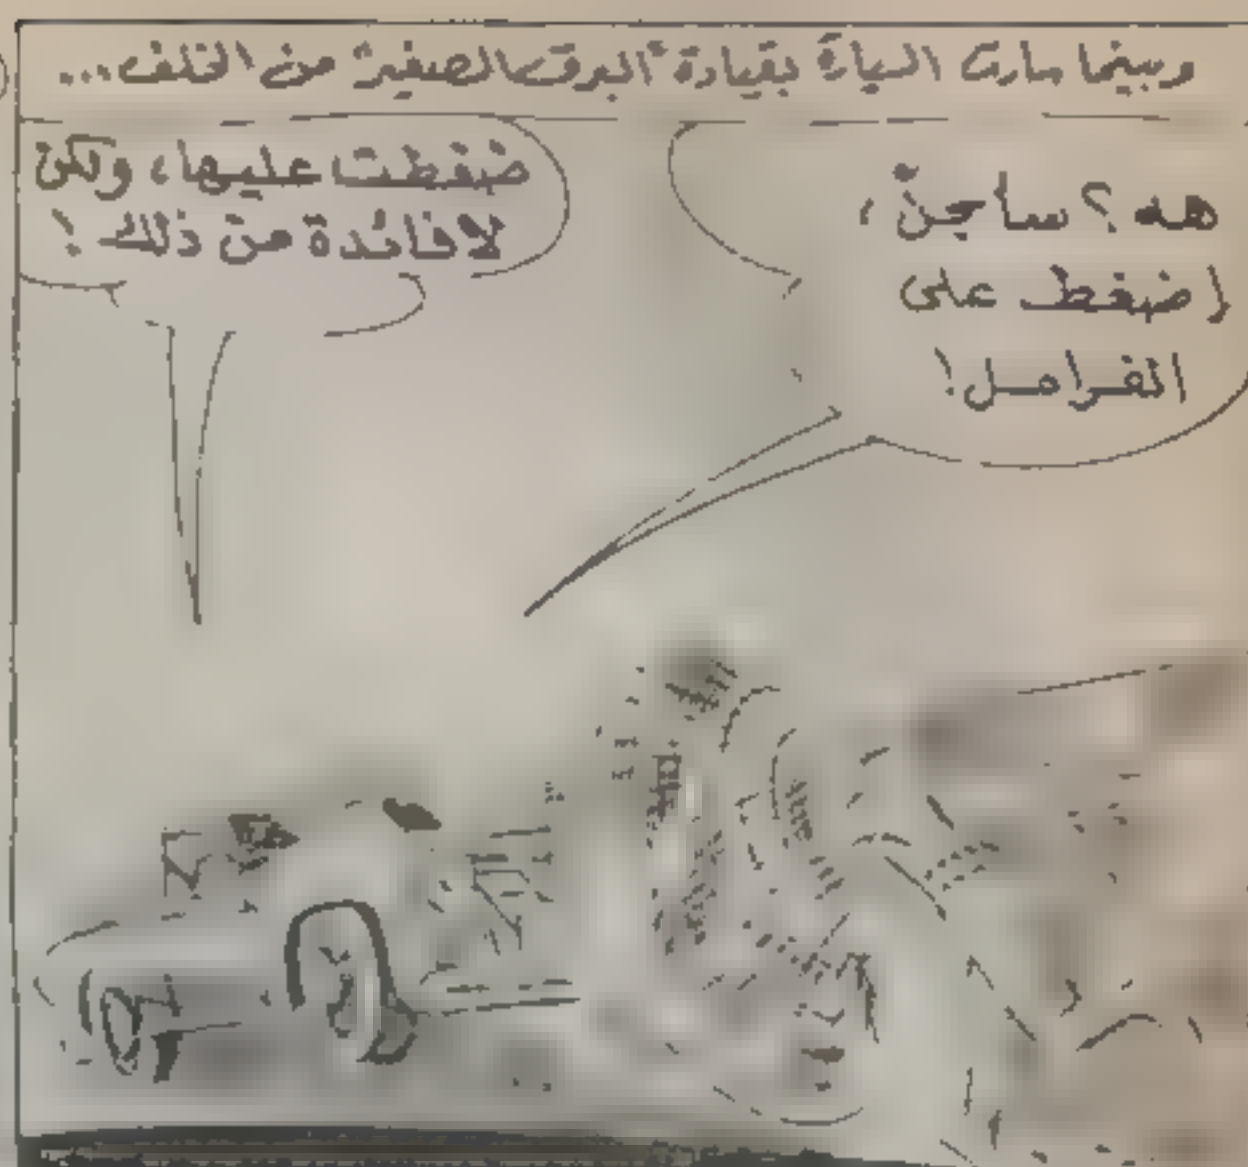 وبينما سارت السيارة بقيادة "البرق الصغير" من الخلف...
هه؟ سأجنّ،
إضغط على
الفرامل!
ضغطت عليها، ولكن
لا فائدة من ذلك!